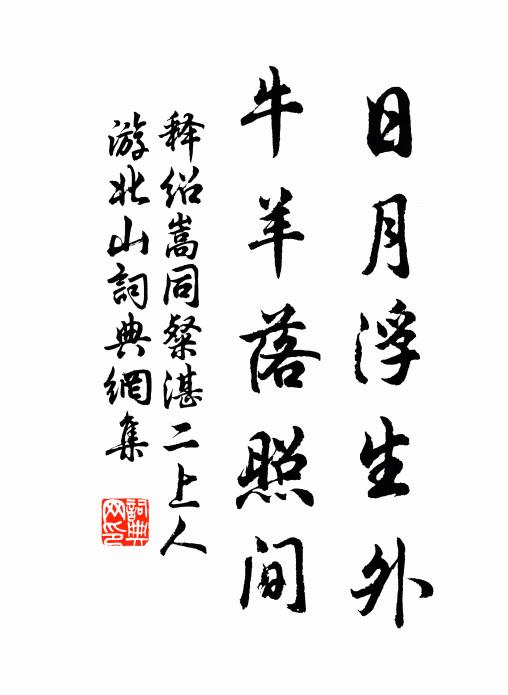 日月浮生外
牛羊落照间
释绍嵩同粲湛二上人
游北山詞典網集
詞典
网印